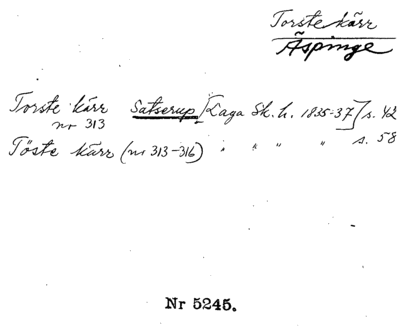 Torste kärr
Äspinge
Torste kärr Satserup [Laga Sk. h. 1835-37] s. 42
nr 313
Töste kärr (nr 313-316) " " " " s. 58
Nr 5245.